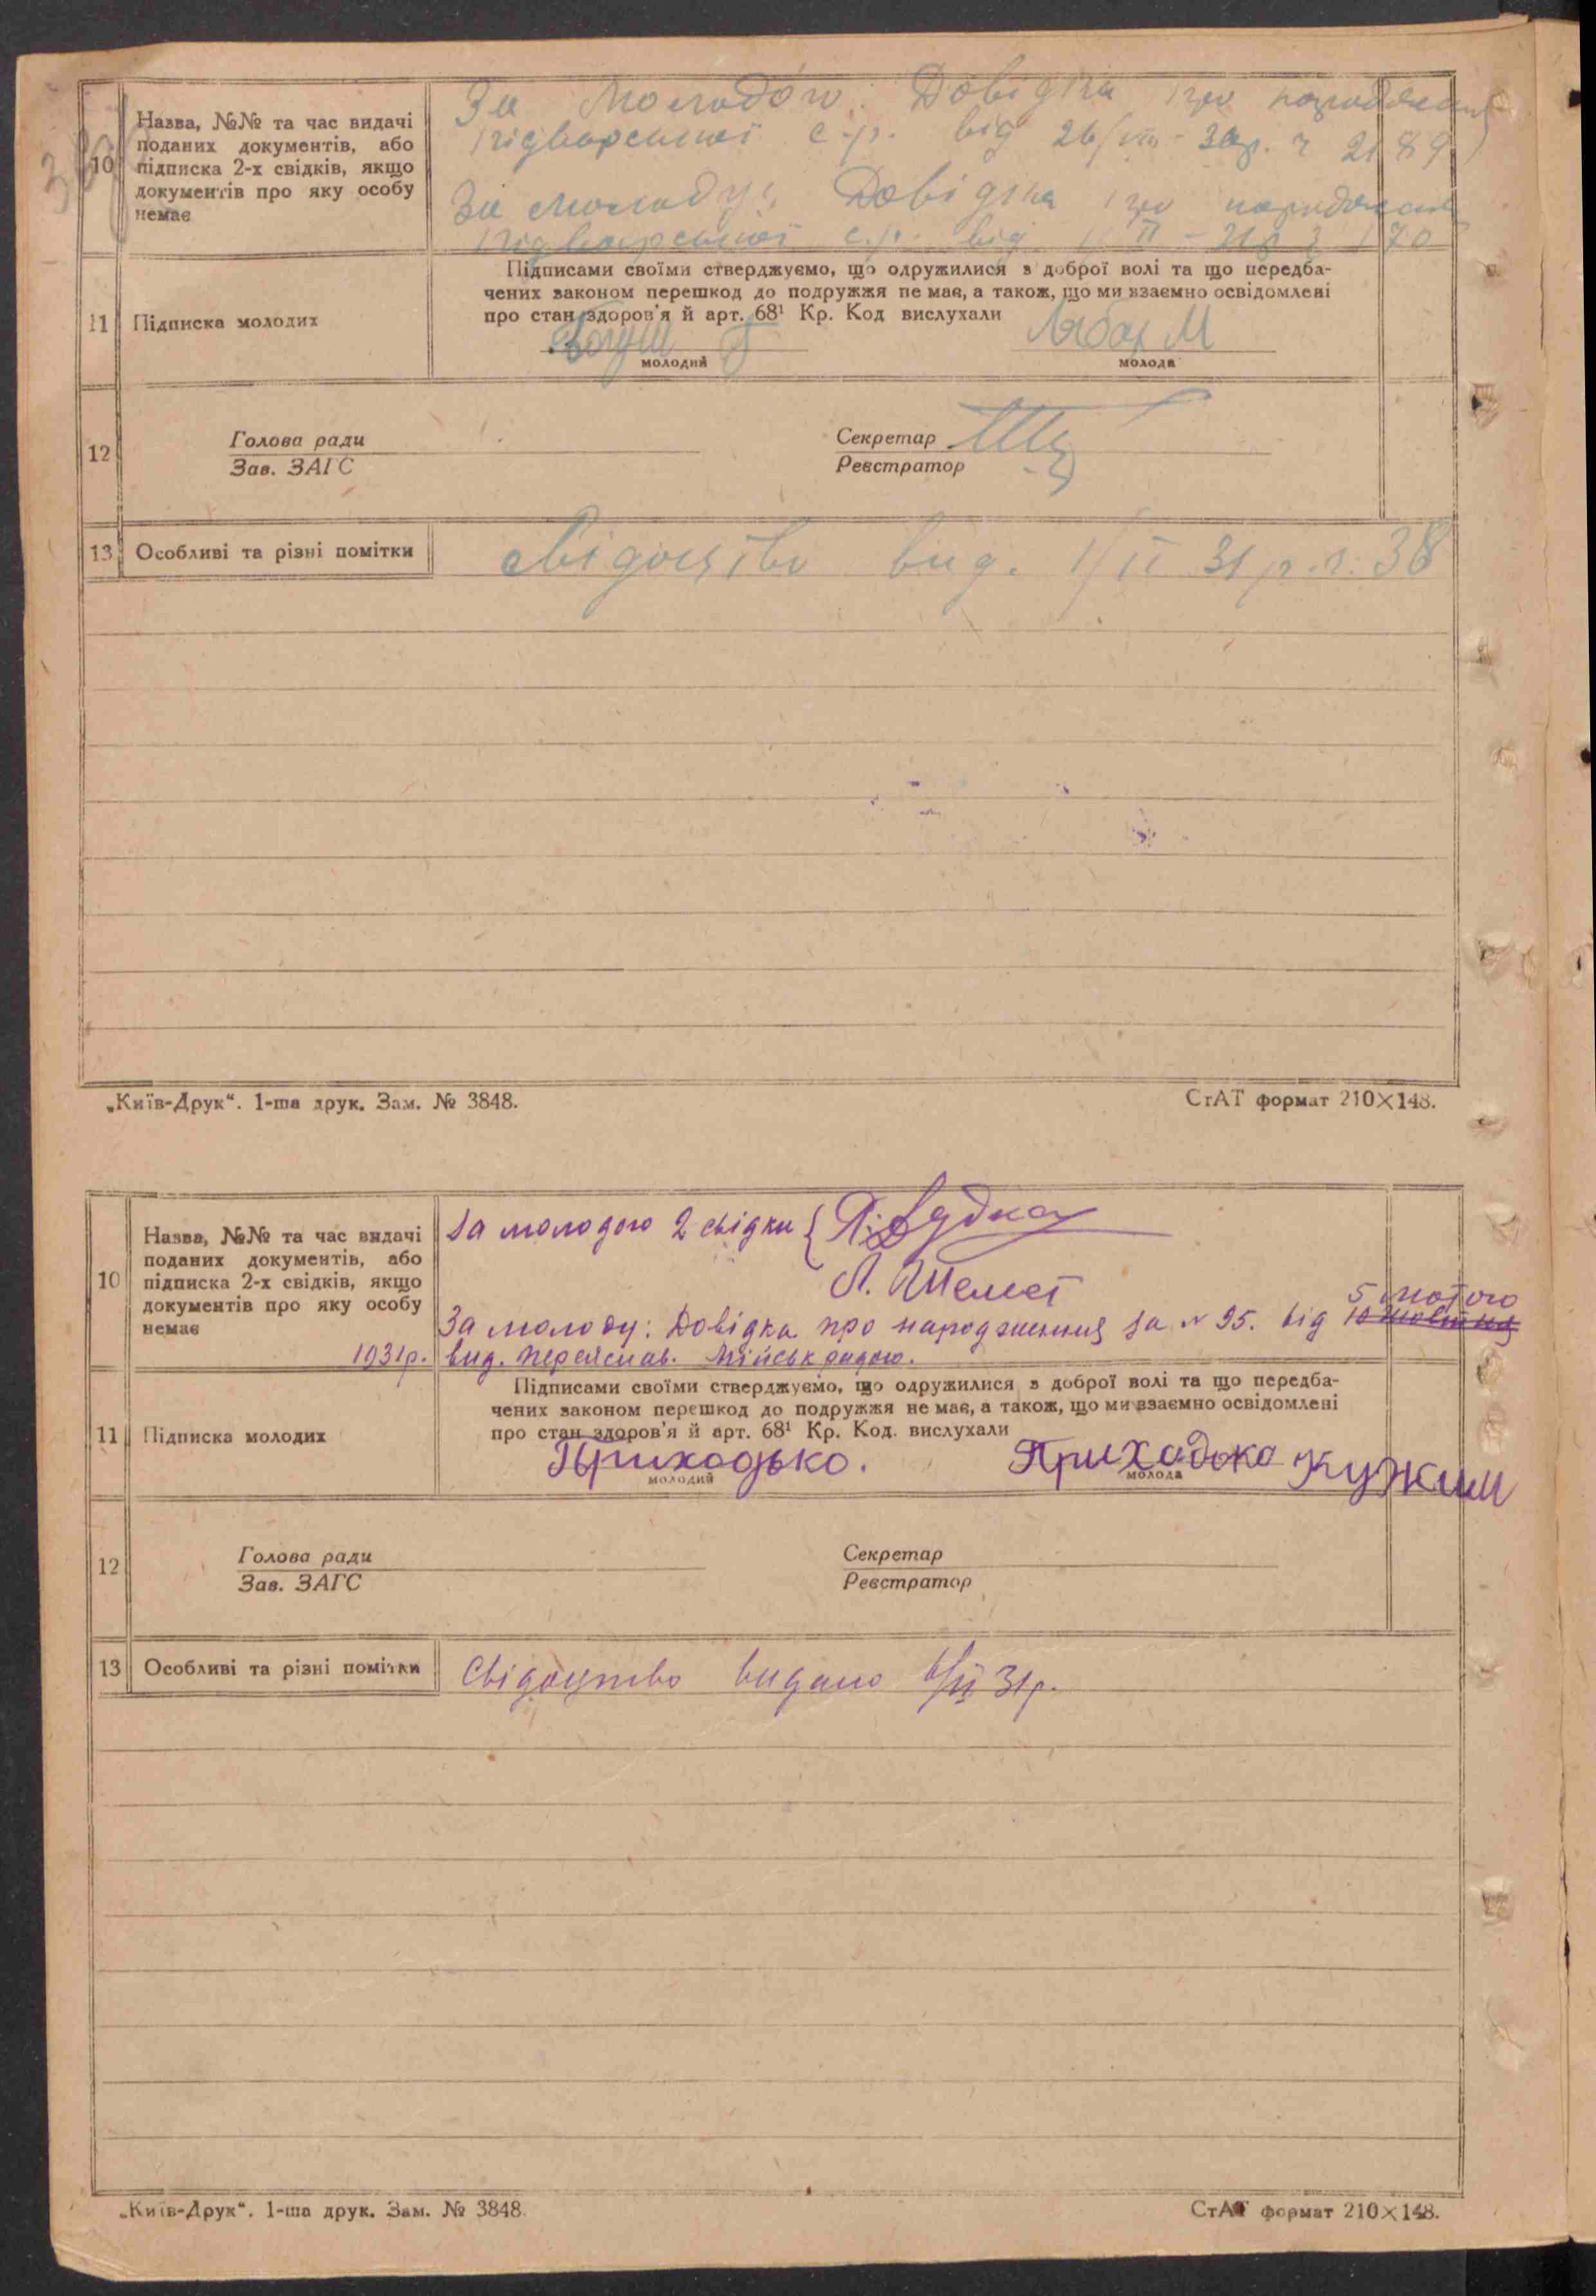 За молодого: Довідка про народження
Підварської с.р. від 26/VII - 30р. ч 2189
10 Назва, №№ та час видачі
поданих документів, або
підписка 2-х свідків, якщо
документів про яку особу
немає
За молоду: Довідка про народження
Підварської с.р. від 1/II - 31р 170
Підписами своїми стверджуємо, що одружилися з доброї волі та що передба-
чених законом перешкод до подружжя не має, а також, що ми взаємно освідомлені
про стан здоров'я й арт. 68¹ Кр. Код вислухали
11 Підписка молодих
молодий молода
12 Голова ради Секретар
Зав. ЗАГС Реєстратор
13 Особливі та різні помітки Свідоцтво вид. 1/II 31 р. ч. 38
„Київ-Друк“. 1-ша друк. Зам. № 3848. СтАТ формат 210×148.
За молодого 2 свідки {
Л. Шемет
10 Назва, №№ та час видачі
поданих документів, або
підписка 2-х свідків, якщо
документів про яку особу
немає
5 лютого
За молоду: Довідка про народження за № 95. від 10 жовтня
1931р. вид. Переяслав. Міськрадою.
Підписами своїми стверджуємо, що одружилися з доброї волі та що передба-
чених законом перешкод до подружжя не має, а також, що ми взаємно освідомлені
про стан здоров'я й арт. 68¹ Кр. Код. вислухали
11 Підписка молодих
Приходько. Приходько Кужим
молодий молода
12 Голова ради Секретар
Зав. ЗАГС Реєстратор
13 Особливі та різні помітки Свідоцтво видано 6/II 31р.
„Київ-Друк“. 1-ша друк. Зам. № 3848. СтАТ формат 210×148.